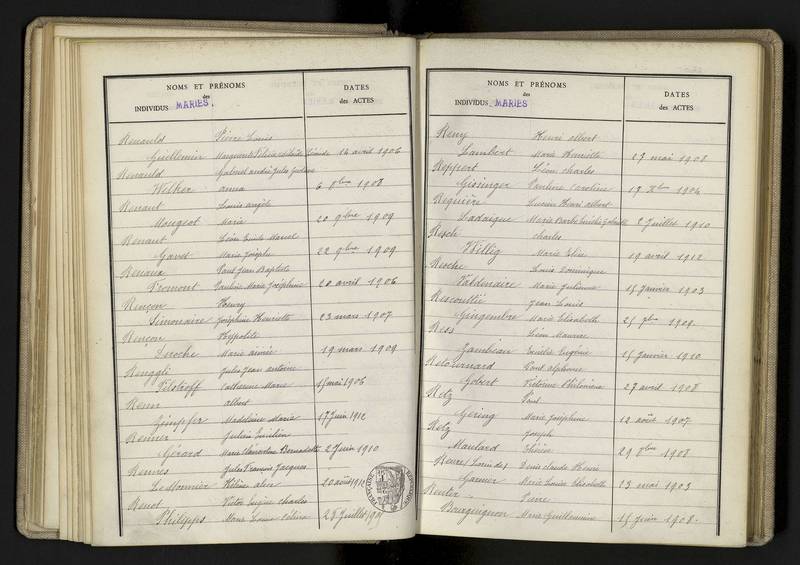 NOMS ET PRÉNOMS
des
INDIVIDUS MARIÉS.
DATES
des ACTES
Renauld Pierre Louis
Guillemin Marguerite 14 avril 1906
Renauld Gabriel André Jules
Welker Anna 6 8bre 1908
Renaut Louis Angèle
Mougeot Marie 20 9bre 1909
Renaut Léon Emile Marcel
Ganet Marie Joseph 22 9bre 1909
Renaux Paul Jean Baptiste
Fromont Pauline Marie Joséphine 20 avril 1906
Rençon Henry
Simonaire Joséphine Henriette 23 mars 1907
Rençon Hippolite
Leroche Marie Aimée 19 mars 1909
Renggli Jules Jean Antoine
Catherine Marie 15 mai 1906
Renn Albert
Zimpfer Madeleine Maria 17 Juin 1912
Renner Julien Emilien
Gérard Marie Clémentine Bernadette 2 Juin 1910
Rennes Jules François Jacques
Le Monnier Hélène 20 août 1912
Renot Victor Eugène Charles
Philipps Marie Louise 28 Juillet
NOMS ET PRÉNOMS
des
INDIVIDUS MARIÉS
DATES
des ACTES
Reny Henri Albert
Lambert Marie Henriette 27 mai 1908
Reppert Léon Charles
Gissinger Pauline Caroline 17 Xbre 1904
Requière Lucien Henri Albert
Ladaique Marie 2 Juillet 1910
Resch Charles
Willig Marie Elise 19 avril 1912
Resche Louis Dominique
Valdenaire Marie Julienne 15 janvier 1903
Jean Louis
Gingembre Marie Elisabeth 25 7bre 1909.
Ress Léon Maurice
Zambeau Emilie Eugénie 15 janvier 1910
Retournard Paul Alphonse
Gobert Victorine Philomène 27 avril 1908
Retz Paul
Gering Marie Joséphine 12 août 1907
Retz Joseph
Maulard Thérèse 29 8bre 1908
Denis Claude Henri
Garnier Marie Louise Elisabeth 13 mai 1903
Reuter Pierre
Bourguignon Marie Guillemine 15 Juin 1908.